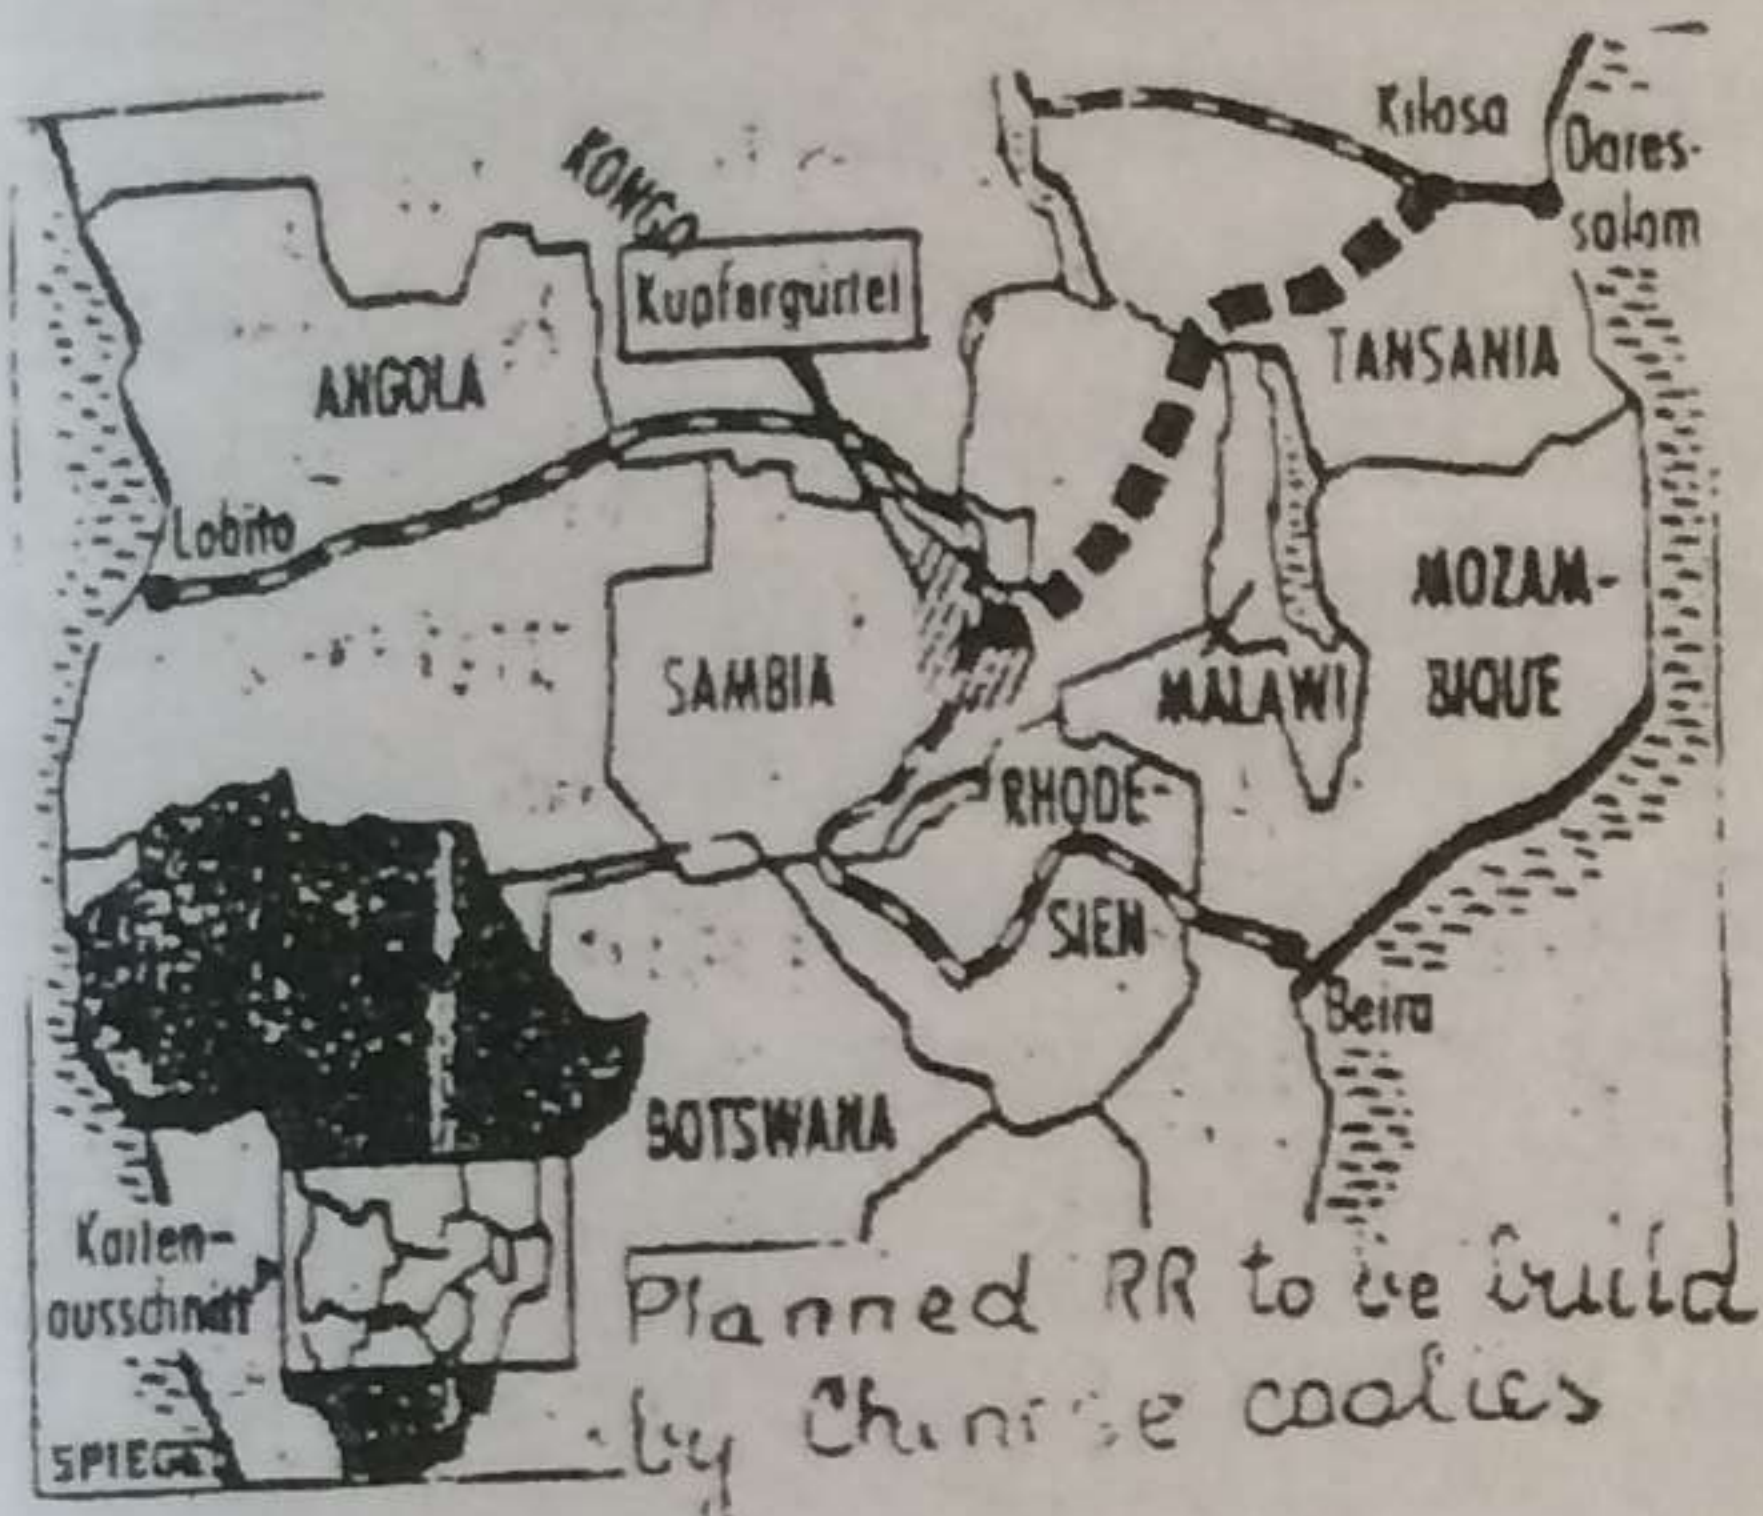 Kilosa
Dares-
salam
KONGO
Kupfergürtel
ANGOLA
TANSANIA
Lobito
MOZAM-
BIQUE
SAMBIA
MALAWI
RHODE-
SIEN
Beira
BOTSWANA
Karten-
ausschnitt
SPIEGEL
Planned RR to be build
by Chinese coolies